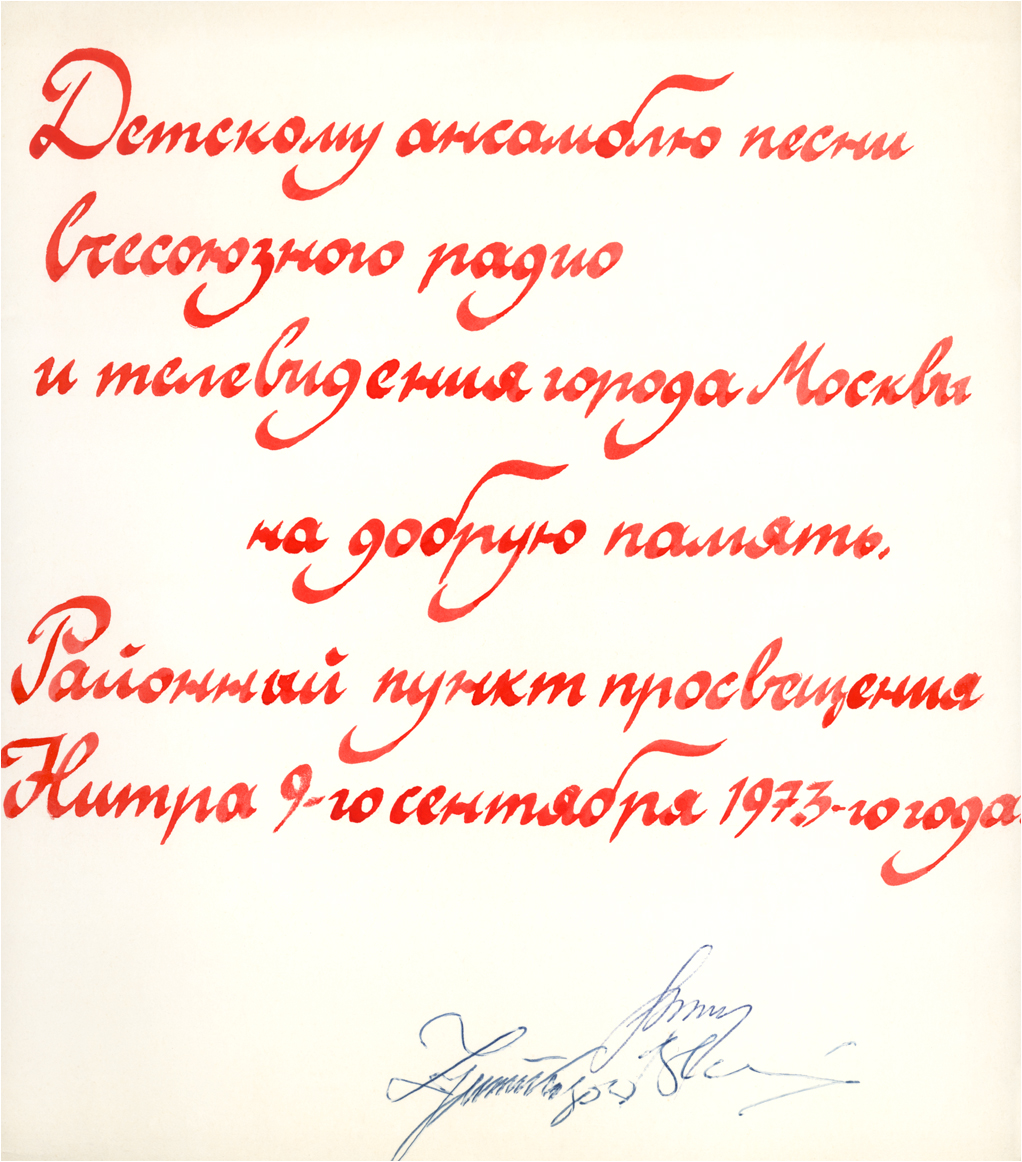 Детскому ансамблю песни
всесоюзного радио
и телевидения города Москвы
на добрую память.
Районный пункт просвещения
Нитра 9-го сентября 1973-го года.